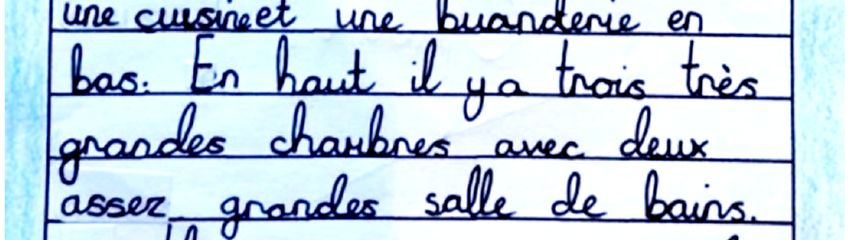 une cuisineet une buanderie en
bas. En haut il y a trois très
grandes chambres avec deux
assez grandes salle de bains.